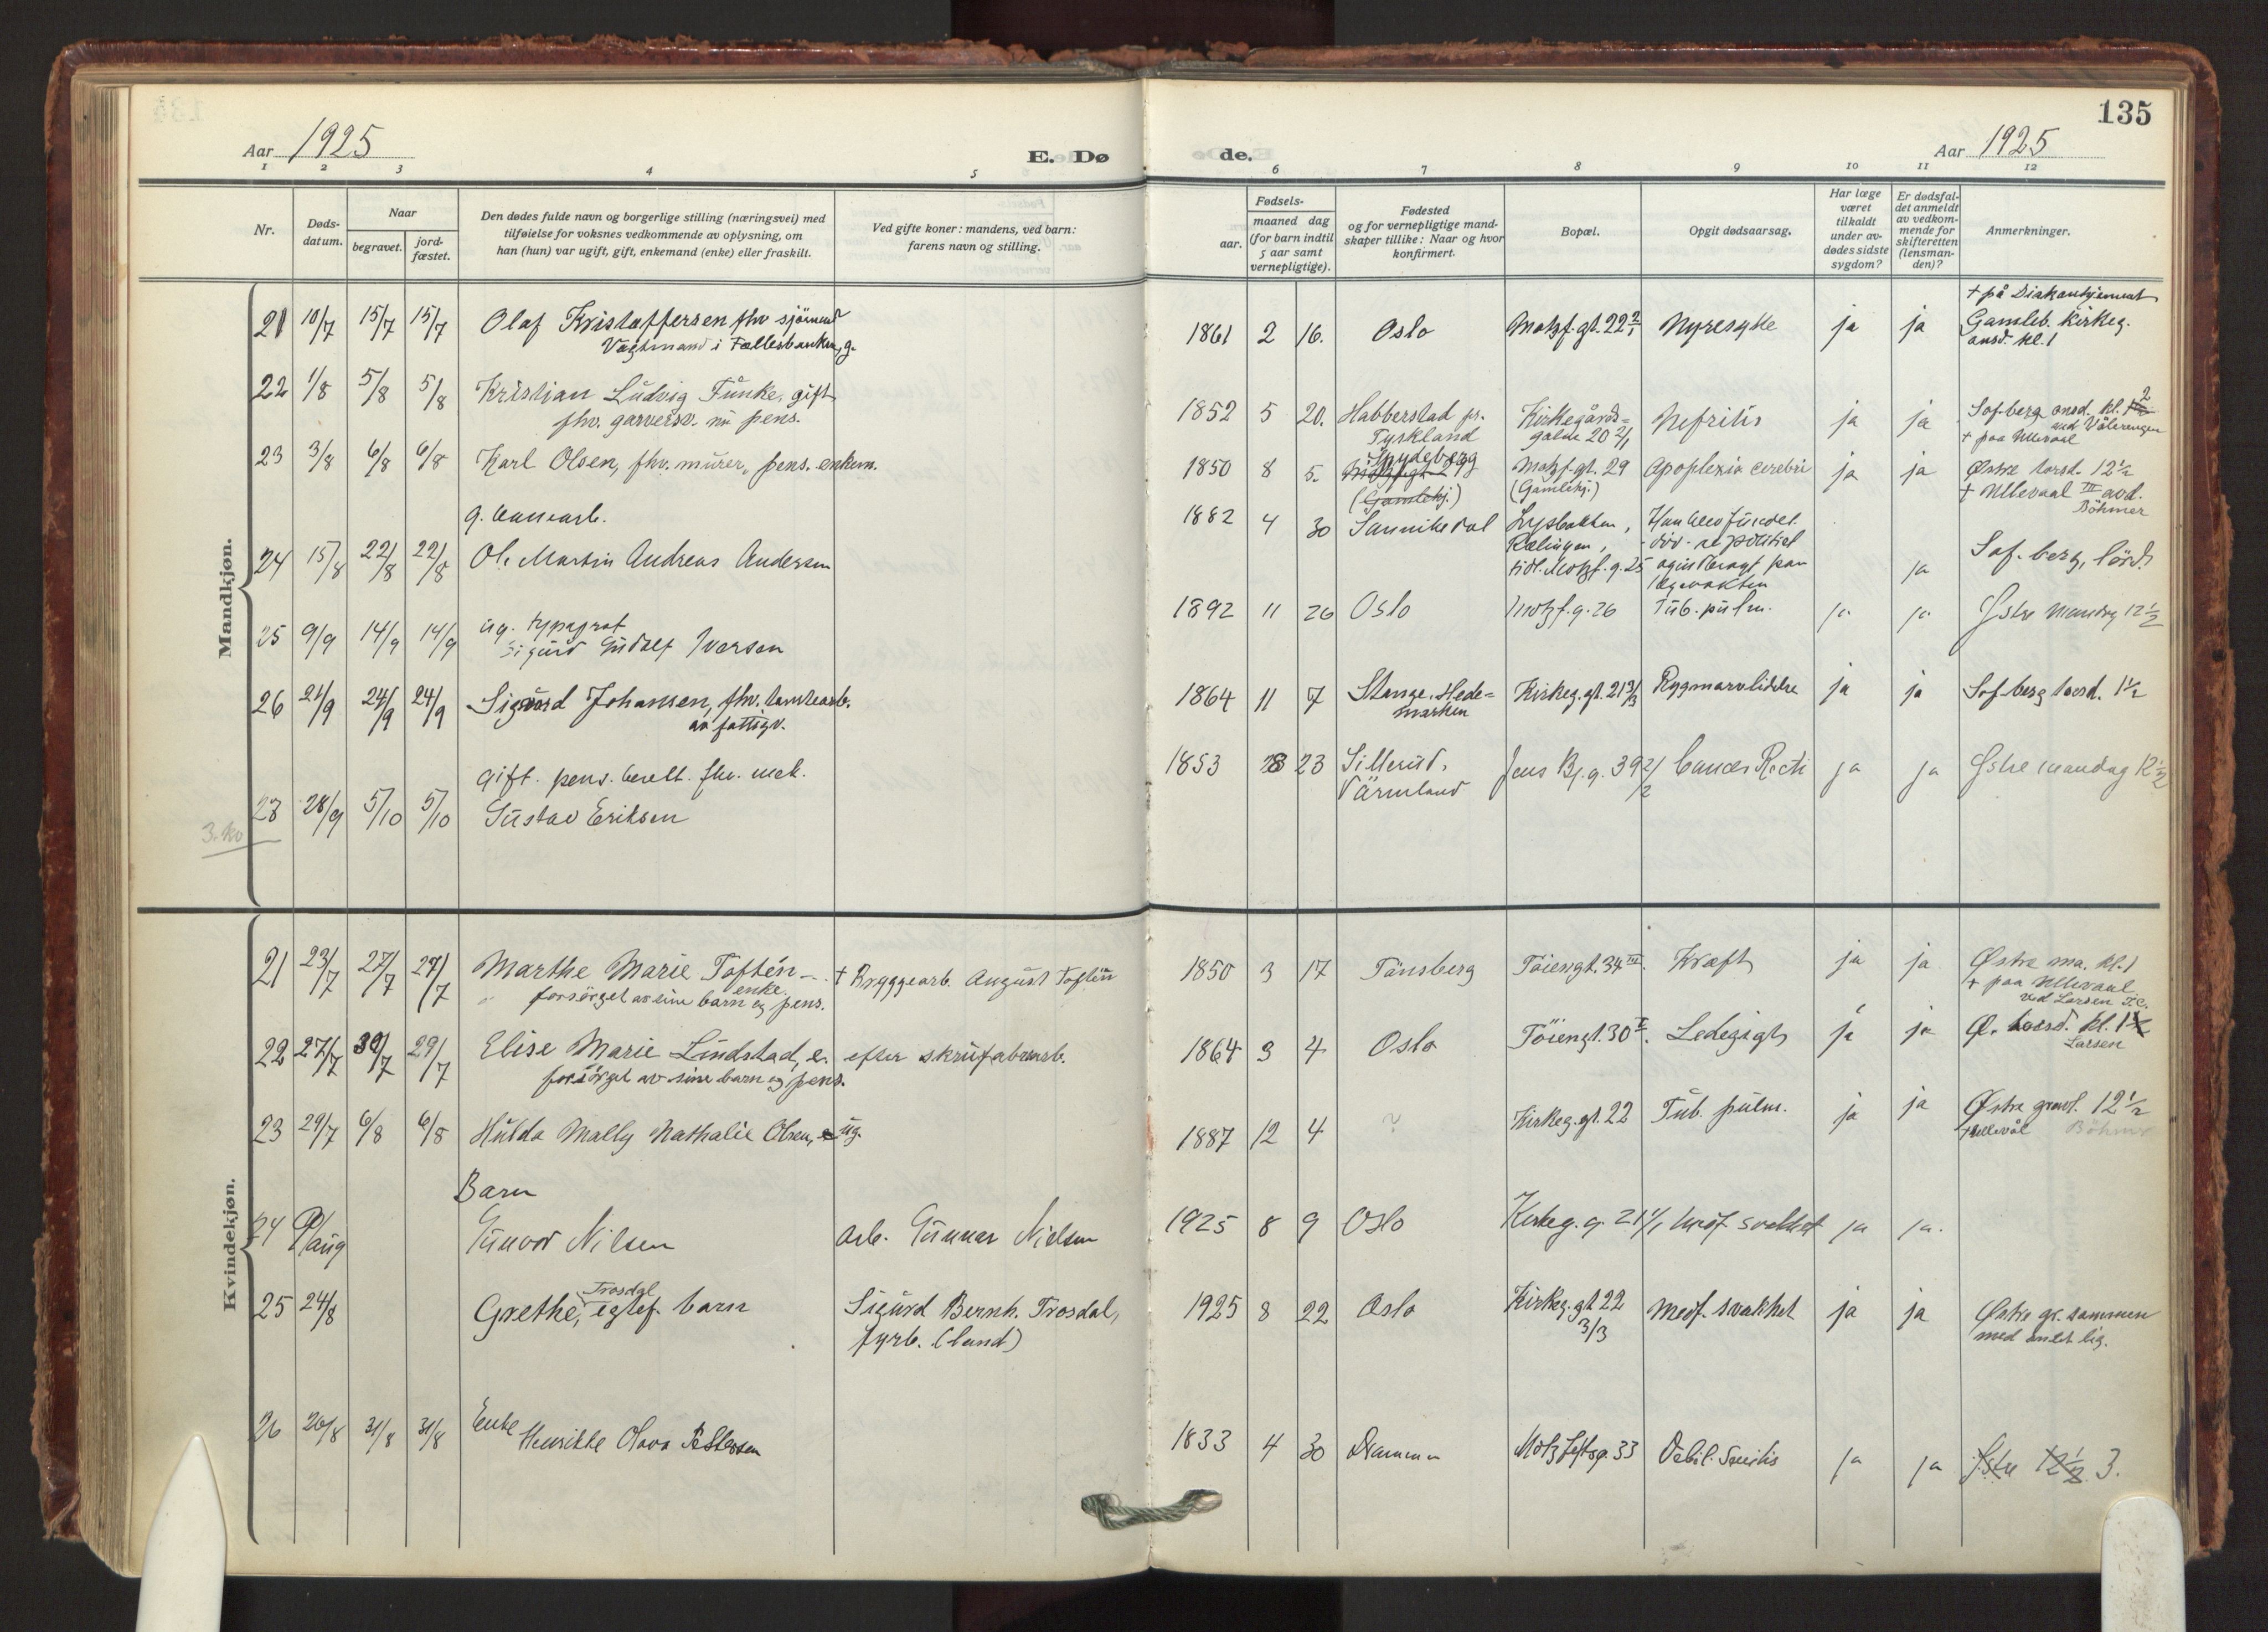 135
Aar 1925
E. Dø
de.
Aar 1925
1 2 3 4 5 6 7 8 9 10 11 12
Nr.
Døds-
datum.
Naar
begravet.
jord-
fæstet.
Den dødes fulde navn og borgerlige stilling (næringsvei) med
tilføielse for voksnes vedkommende av oplysning, om
han (hun) var ugift, gift, enkemand (enke) eller fraskilt.
Ved gifte koner: mandens, ved barn:
farens navn og stilling.
Fødsels-
aar.
maaned dag
(for barn indtil
5 aar samt
vernepligtige).
Fødested
og for vernepligtige mand-
skaper tillike: Naar og hvor
konfirmert.
Bopæl.
Opgit dødsaarsag.
Har læge
været
tilkaldt
under av-
dødes sidste
sygdom?
Er dødsfal-
det anmeldt
av vedkom-
mende for
skifteretten
(lensman-
den)?
Anmerkninger.
Mandkjøn.
21 10/7 15/7 15/7 Olaf Kristoffersen fhv sjömand
Vagtmand i Fællesbanken, g.
1861 2 16. Oslo Motzf.gt. 22 2/1 Nyresyke ja ja
+ på Diakonhjemmet
Gamleb. Kirkeg.
onsd. kl. 1
22 1/8 5/8 5/8 Kristian Ludvig Funke, gift
fhv. garversv. nu pens.
1852 5 20. Habberstad pr.
Tyskland
Kirkegårds-
gaten 20 2/1
Nefritis ja ja
Sof.berg onsd. kl. 2
ved Vålerengen
+ paa Ullevaal
23 3/8 6/8 6/8 Karl Olsen, fhv. murer, pens. enkem.
1850 8 5. Spydeberg
(Gamlehj.)
Motzf.gt. 29
(Gamlehj.)
Apoplexia cerebri ja ja
Østre torsd. 12 1/2
+ Ullevaal III avd.
Böhmer
g.
24 15/8 22/8 22/8 Ole Martin Andreas Andersen
1882 4 30 Sannikedal
Rælingen,
tidl. Motzf.g. 25
Han blev fundet
död - av politiet
ja
Sof.berg, lörd.
ug. typograf
25 9/9 14/9 14/9 Sigurd Gudolf Iversen
1892 11 26 Oslo Motzf.g. 26 Tub. pulm. ja ja Østre Mandag 12 1/2
26 21/9 24/9 24/9 Sigurd Johansen, fhv. tomtearb.
av fattigv.
1864 11 7 Stange, Hede-
marken
Kirkeg.gt. 21 3/3 Rygmarvlidelse ja ja Sof.berg torsd. 1 1/2
gift. pens. fhv. mek.
27 28/9 5/10 5/10 Gustav Eriksen
3. kv
1853 23 Sillerud,
Värmland
Jens Bj.g. 39 2/2 Cancer Recti ja ja Østre mandag 12 1/2
Kvindekjøn.
21 23/7 27/7 27/7 Marthe Marie Toftén - enke.
forsörget av sine barn og pens.
+ Bryggearb. August Toftén
1850 3 17 Tönsberg Töiengt. 34 III. Kræft ja ja
Østre ma. kl. 1
+ paa Ullevaal
ved Larsen
22 27/7 30/7 29/7 Elise Marie Lindstad, e.
forsörget av sine barn og pens.
efter skrufabrarb.
1864 3 4 Oslo Töiengt. 30 Ledegigt ja ja
Ø. torsd. kl. 1
Larsen
23 29/7 6/8 6/8 Hulda Mally Nathalie Olsen, ug.
1887 12 4 ? Kirkeg.gt. 22 Tub. pulm. ja ja
Østre gravl. 12 1/2
+ Ullevål Böhmer
Barn
24 9/aug Gunvor Nilsen
arb. Gunnar Nielsen
1925 8 9 Oslo Kirkeg.g. 21 1/1 medf. svakhet ja ja.
25 24/8 Grethe, Trosdal egtef. barn
Sigurd Bernh. Trosdal,
fyrb. (land)
1925 8 22 Oslo Kirkeg.gt 22
3/3
Medf. svakhet ja ja
Østre gr. sammen
med andet lig.
Enke
26 20/8 31/8 31/8 Henrikke Olava Pettersen
1833 4 30 Drammen Motzfeltsg. 33 Debil. Senilis ja ja Østre 12 1/2 3.